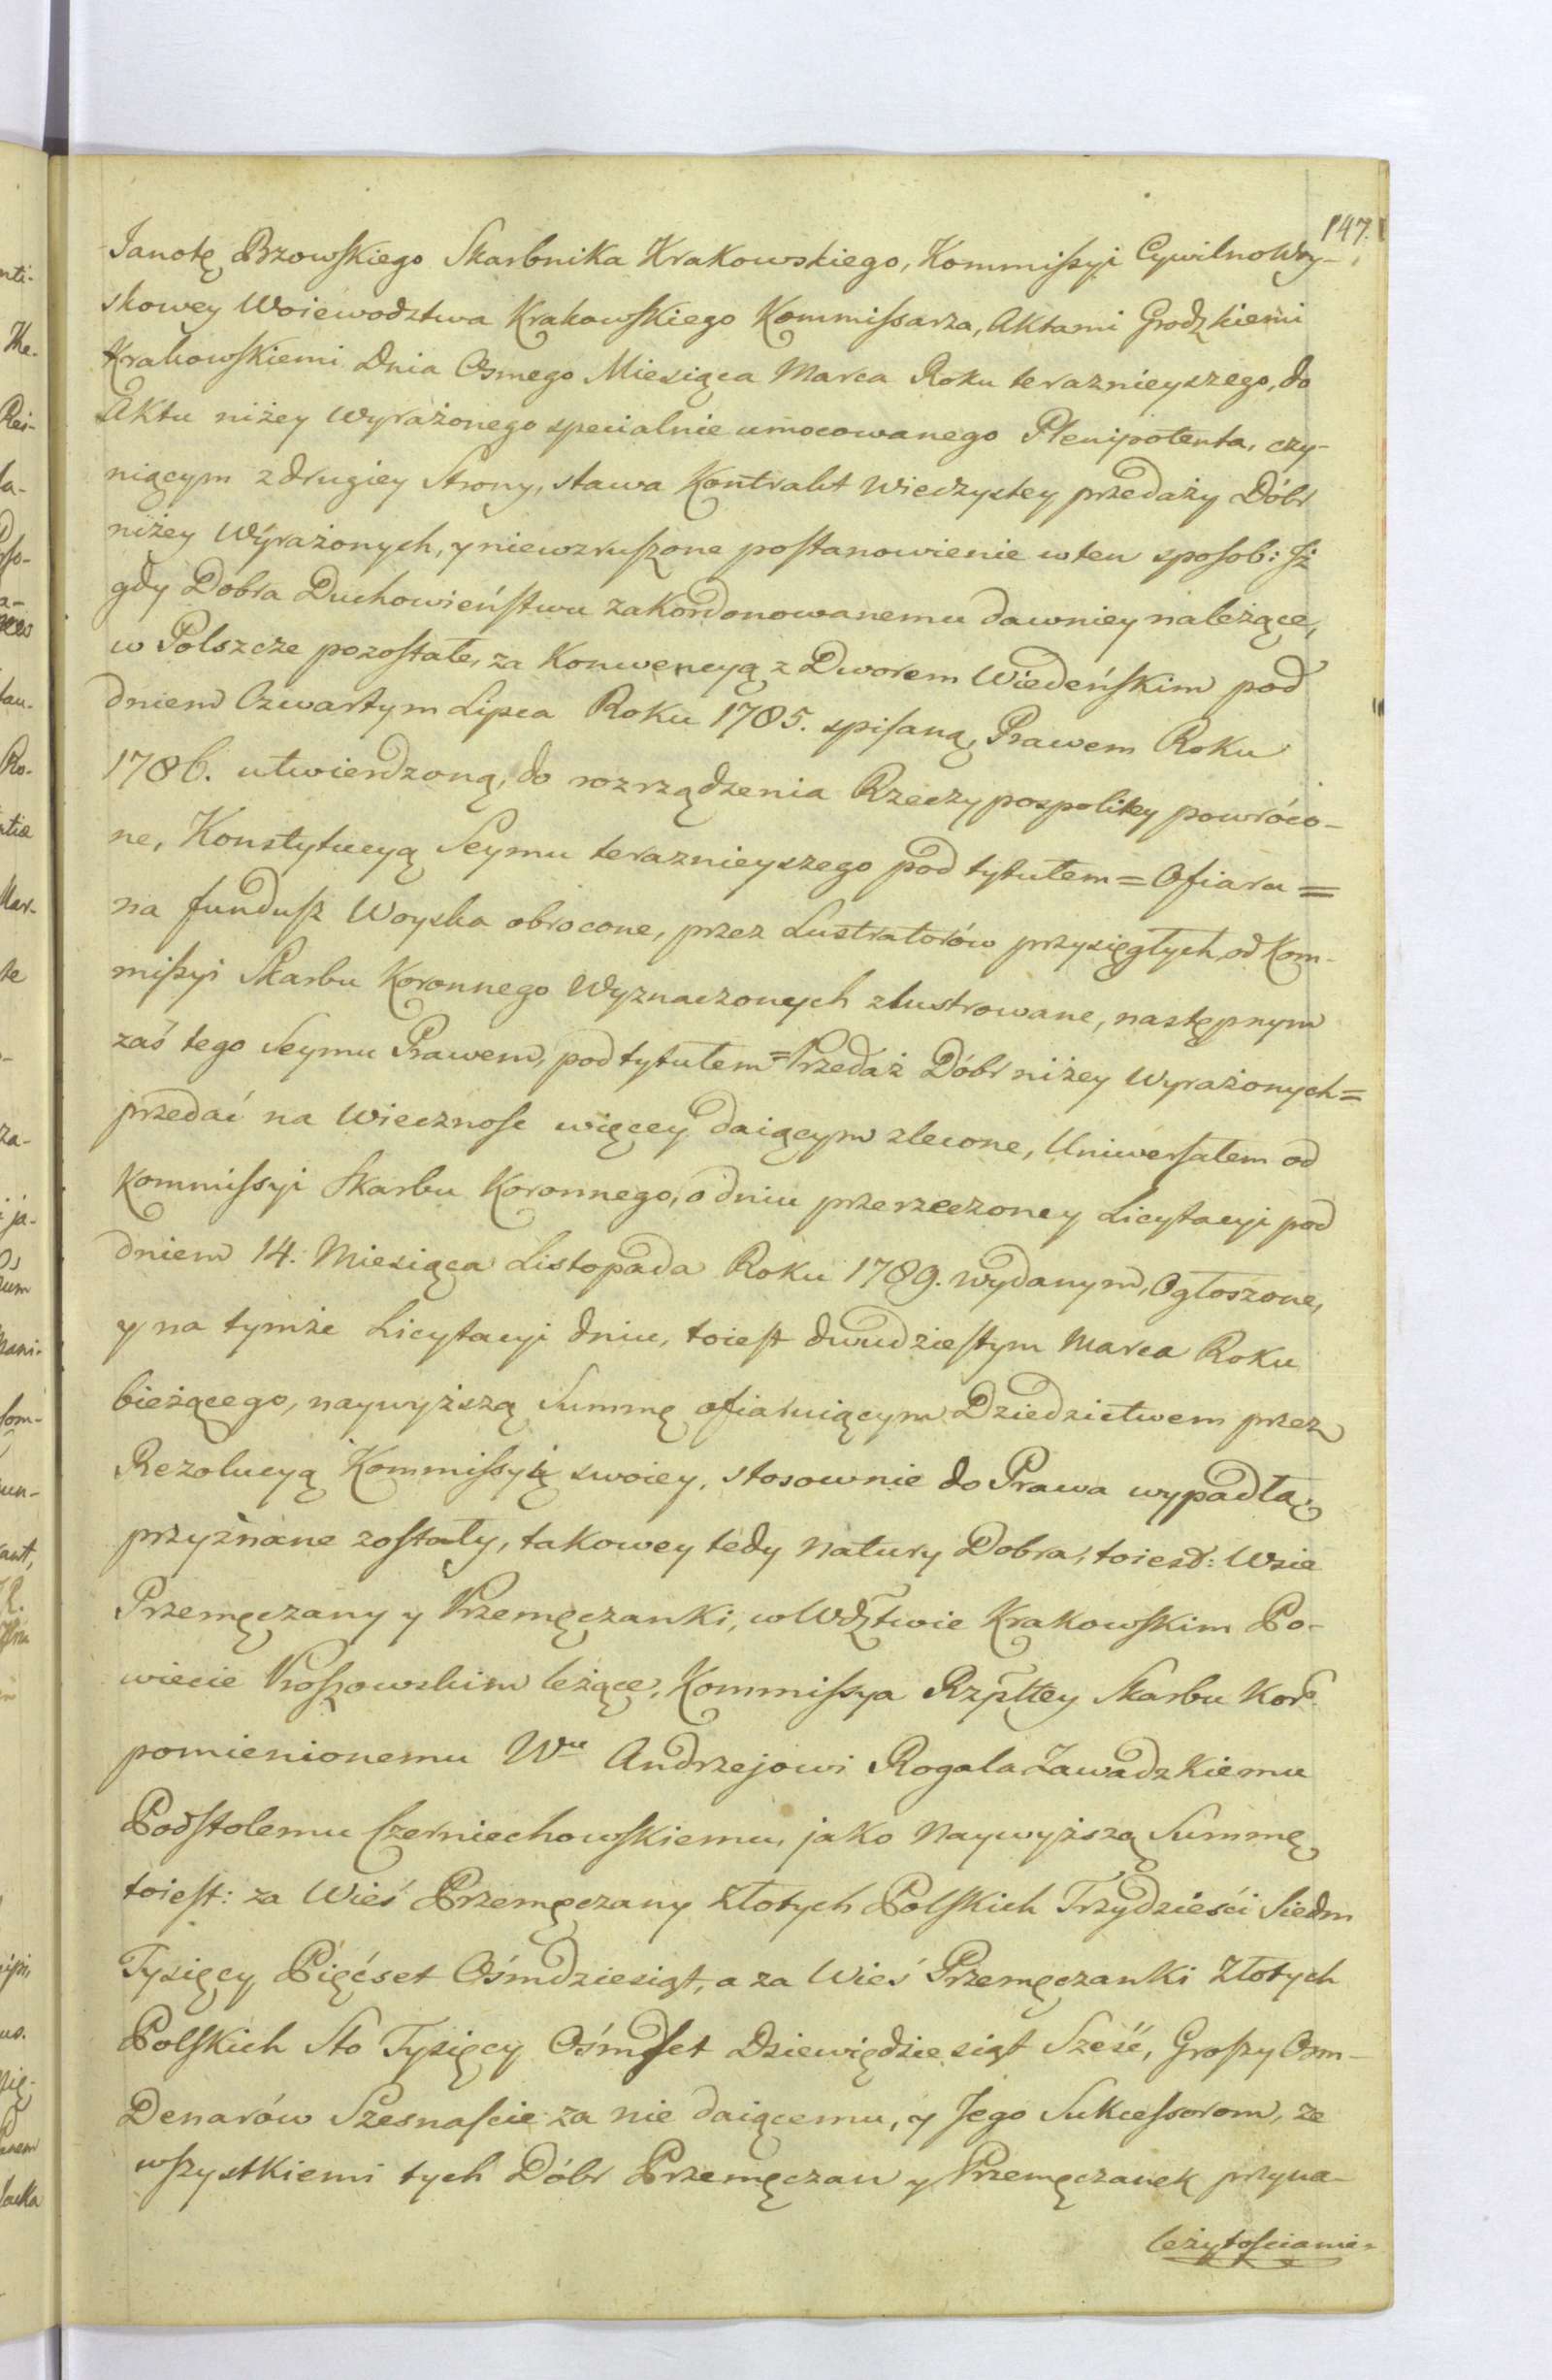 147.
Janotę Brzowskiego Skarbnika Krakowskiego, Kommissyi CywilnoWoy-
skowey Woiewodztwa Krakowskiego Kommissarza, Aktami Grodzkiemi
Krakowskiemi Dnia Osmego Miesiąca Marca Roku teraznieyszego, do
Aktu niżey wyrażonego specialnie umocowanego Plenipotenta, czy-
niącym z drugiey Strony, stawa Kontrakt Wieczystey przedaży Dóbr
niżey Wyrażonych, y niewzruszone postanowienie w ten sposob: Jż
gdy Dobra Duchowieństwu zakordonowanemu dawniey należące,
w Polszcze pozostałe, za Konwencyą z Dworem Wiedeńskim pod
dniem Czwartym Lipca Roku 1785. spisaną, Prawem Roku
1786. utwierdzoną, do rozrządzenia Rzeczypospolitey powróco-
ne, Konstytucyą Seymu teraznieyszego pod tytułem = Ofiara =
na fundusz Woyska obrocone, przez Lustratorów przysięgłych, od Kom-
missyi Skarbu Koronnego Wyznaczonych zlustrowane, następnym
zaś tego Seymu Prawem, pod tytułem = Przedaż Dóbr niżey Wyrażonych =
przedać na Wieczność więcey daiącym zlecone, Uniwersałem od
Kommissyi Skarbu Koronnego, o dniu przerzeczoney Licytacyi pod
dniem 14. Miesiąca Listopada Roku 1789. wydanym, Ogłoszone,
y na tymże Licytacyi dniu, toiest dwudziestym Marca Roku
bieżącego, naywyższą Summę ofiaruiącym Dziedzictwem przez
Rezolucyą Kommissyi swoiey, stosownie do Prawa wypadłą,
przyznane zostały, takowey tedy Natury Dobra, toiest: Wsie
Przemęczany y Przemęczanki, w Wdztwie Krakowskim Po-
wiecie Proszowskim leżące, Kommissya Rzpltey Skarbu Koro
pomienionemu Wu Andrzejowi Rogala Zawadzkiemu
Podstolemu Czerniechowskiemu, jako Naywyższą Summę
toiest: za Wieś Przemęczany Złotych Polskich Trzydzieści Siedm
Tysięcy Pięćset Ośmdziesiąt, a za Wieś Przemęczanki Złotych
Polskich Sto Tysięcy Ośmset Dziewiędziesiąt Sześć, Groszy Osm-
Denarów Szesnaście za nie daiącemu, y Jego Sukcessorom, ze
wszystkiemi tych Dóbr Przemęczan y Przemęczanek przyna-
leżytościami-